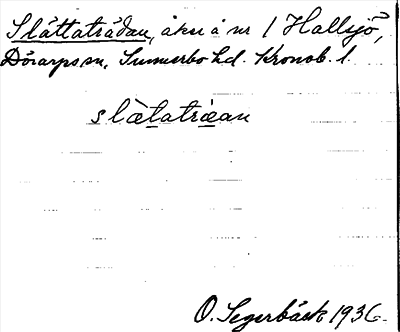 Slättaträdan, åker å nr 1 Hallsjö,
Dörarps sn, Sunnerbo hd. Kronob. l.
slæ̀tatræan
O. Segerbäck 1936.